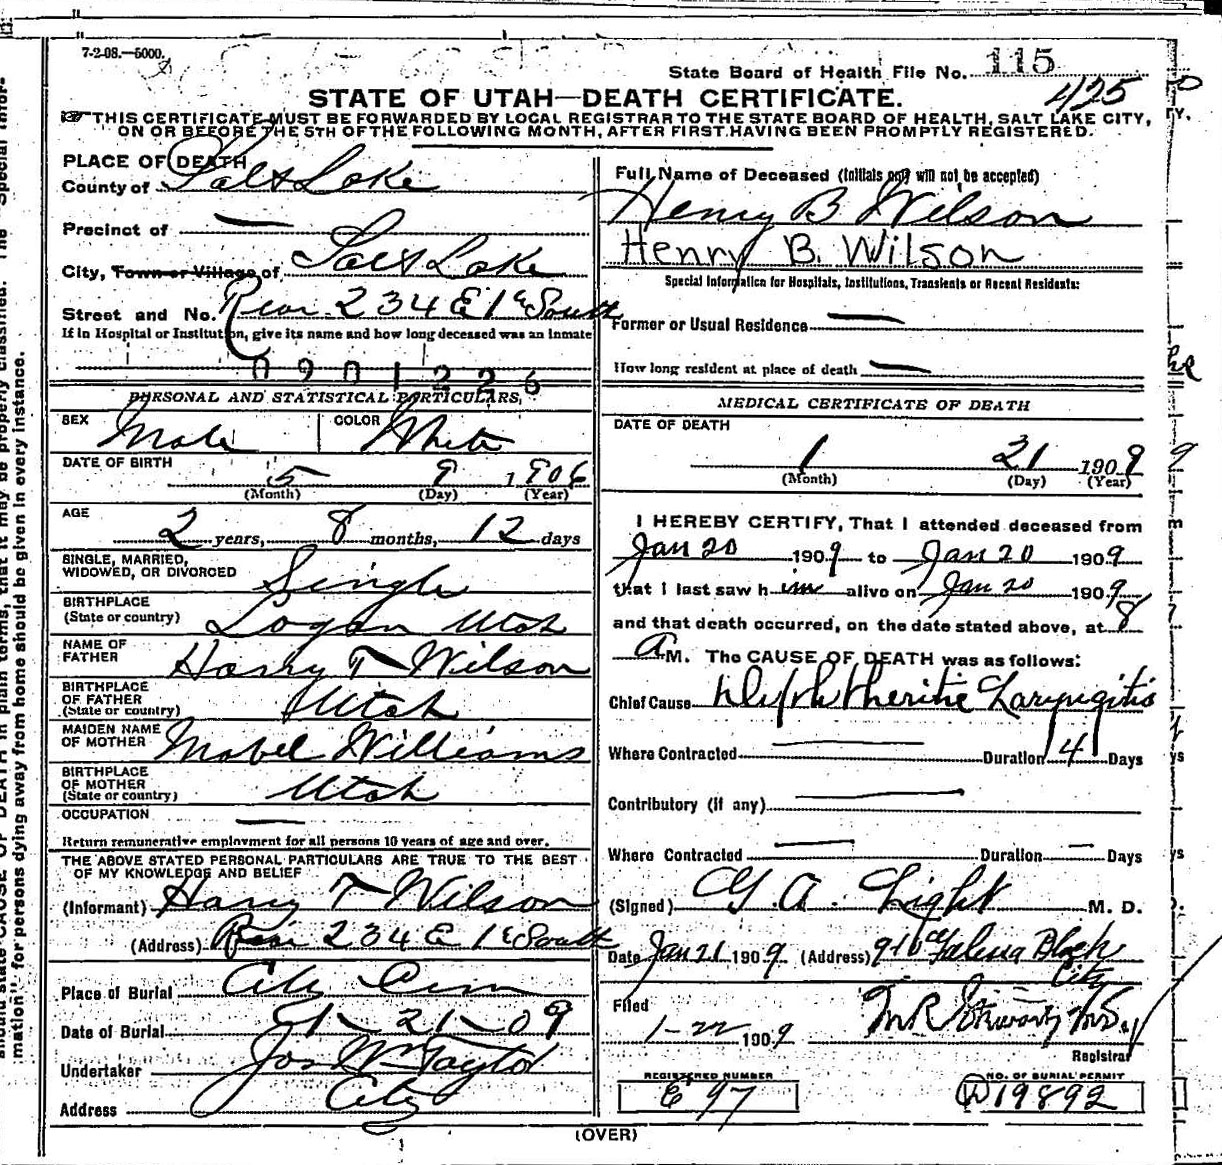 7-2-08.—5000.
State Board of Health File No. 115
425
STATE OF UTAH—DEATH CERTIFICATE.
THIS CERTIFICATE MUST BE FORWARDED BY LOCAL REGISTRAR TO THE STATE BOARD OF HEALTH, SALT LAKE CITY,
ON OR BEFORE THE 5TH OF THE FOLLOWING MONTH, AFTER FIRST HAVING BEEN PROMPTLY REGISTERED.
PLACE OF DEATH
County of Salt Lake
Precinct of —
City, Town or Village of Salt Lake
Street and No. Rear 234 E 1st South
If in Hospital or Institution, give its name and how long deceased was an inmate
0901226
PERSONAL AND STATISTICAL PARTICULARS
SEX Male COLOR White
DATE OF BIRTH 5 9 1906
(Month) (Day) (Year)
AGE
2 years, 8 months, 12 days
SINGLE, MARRIED,
WIDOWED, OR DIVORCED Single
BIRTHPLACE
(State or country) Logan Utah
NAME OF
FATHER Harry T Wilson
BIRTHPLACE
OF FATHER
(State or country) Utah
MAIDEN NAME
OF MOTHER Mabel Williams
BIRTHPLACE
OF MOTHER
(State or country) Utah
OCCUPATION —
Return remunerative employment for all persons 10 years of age and over.
THE ABOVE STATED PERSONAL PARTICULARS ARE TRUE TO THE BEST
OF MY KNOWLEDGE AND BELIEF
(Informant) Harry T Wilson
(Address) Rear 234 E 1st South
Place of Burial City Cem
Date of Burial 1-21-09
Undertaker Jos Wm Taylor
Address City
Full Name of Deceased (Initials only will not be accepted)
Henry B Wilson
Henry B. Wilson
Special Information for Hospitals, Institutions, Transients or Recent Residents:
Former or Usual Residence —
How long resident at place of death —
MEDICAL CERTIFICATE OF DEATH
DATE OF DEATH
1 21 1909
(Month) (Day) (Year)
I HEREBY CERTIFY, That I attended deceased from
Jan 20 1909 to Jan 20 1909
that I last saw him alive on Jan 20 1909
and that death occurred, on the date stated above, at 8
A M. The CAUSE OF DEATH was as follows:
Chief Cause Diphtheritic Laryngitis
Where Contracted — Duration 4 Days
Contributory (if any) —
Where Contracted — Duration — Days
(Signed) G. A. Light M. D.
Date Jan 21 1909 (Address) 910 Galena Block
City
Filed
1-22 1909
Registrar
REGISTERED NUMBER
E 97
NO. OF BURIAL PERMIT
19892
(OVER)
mation" for persons dying away from home should be given in every instance.